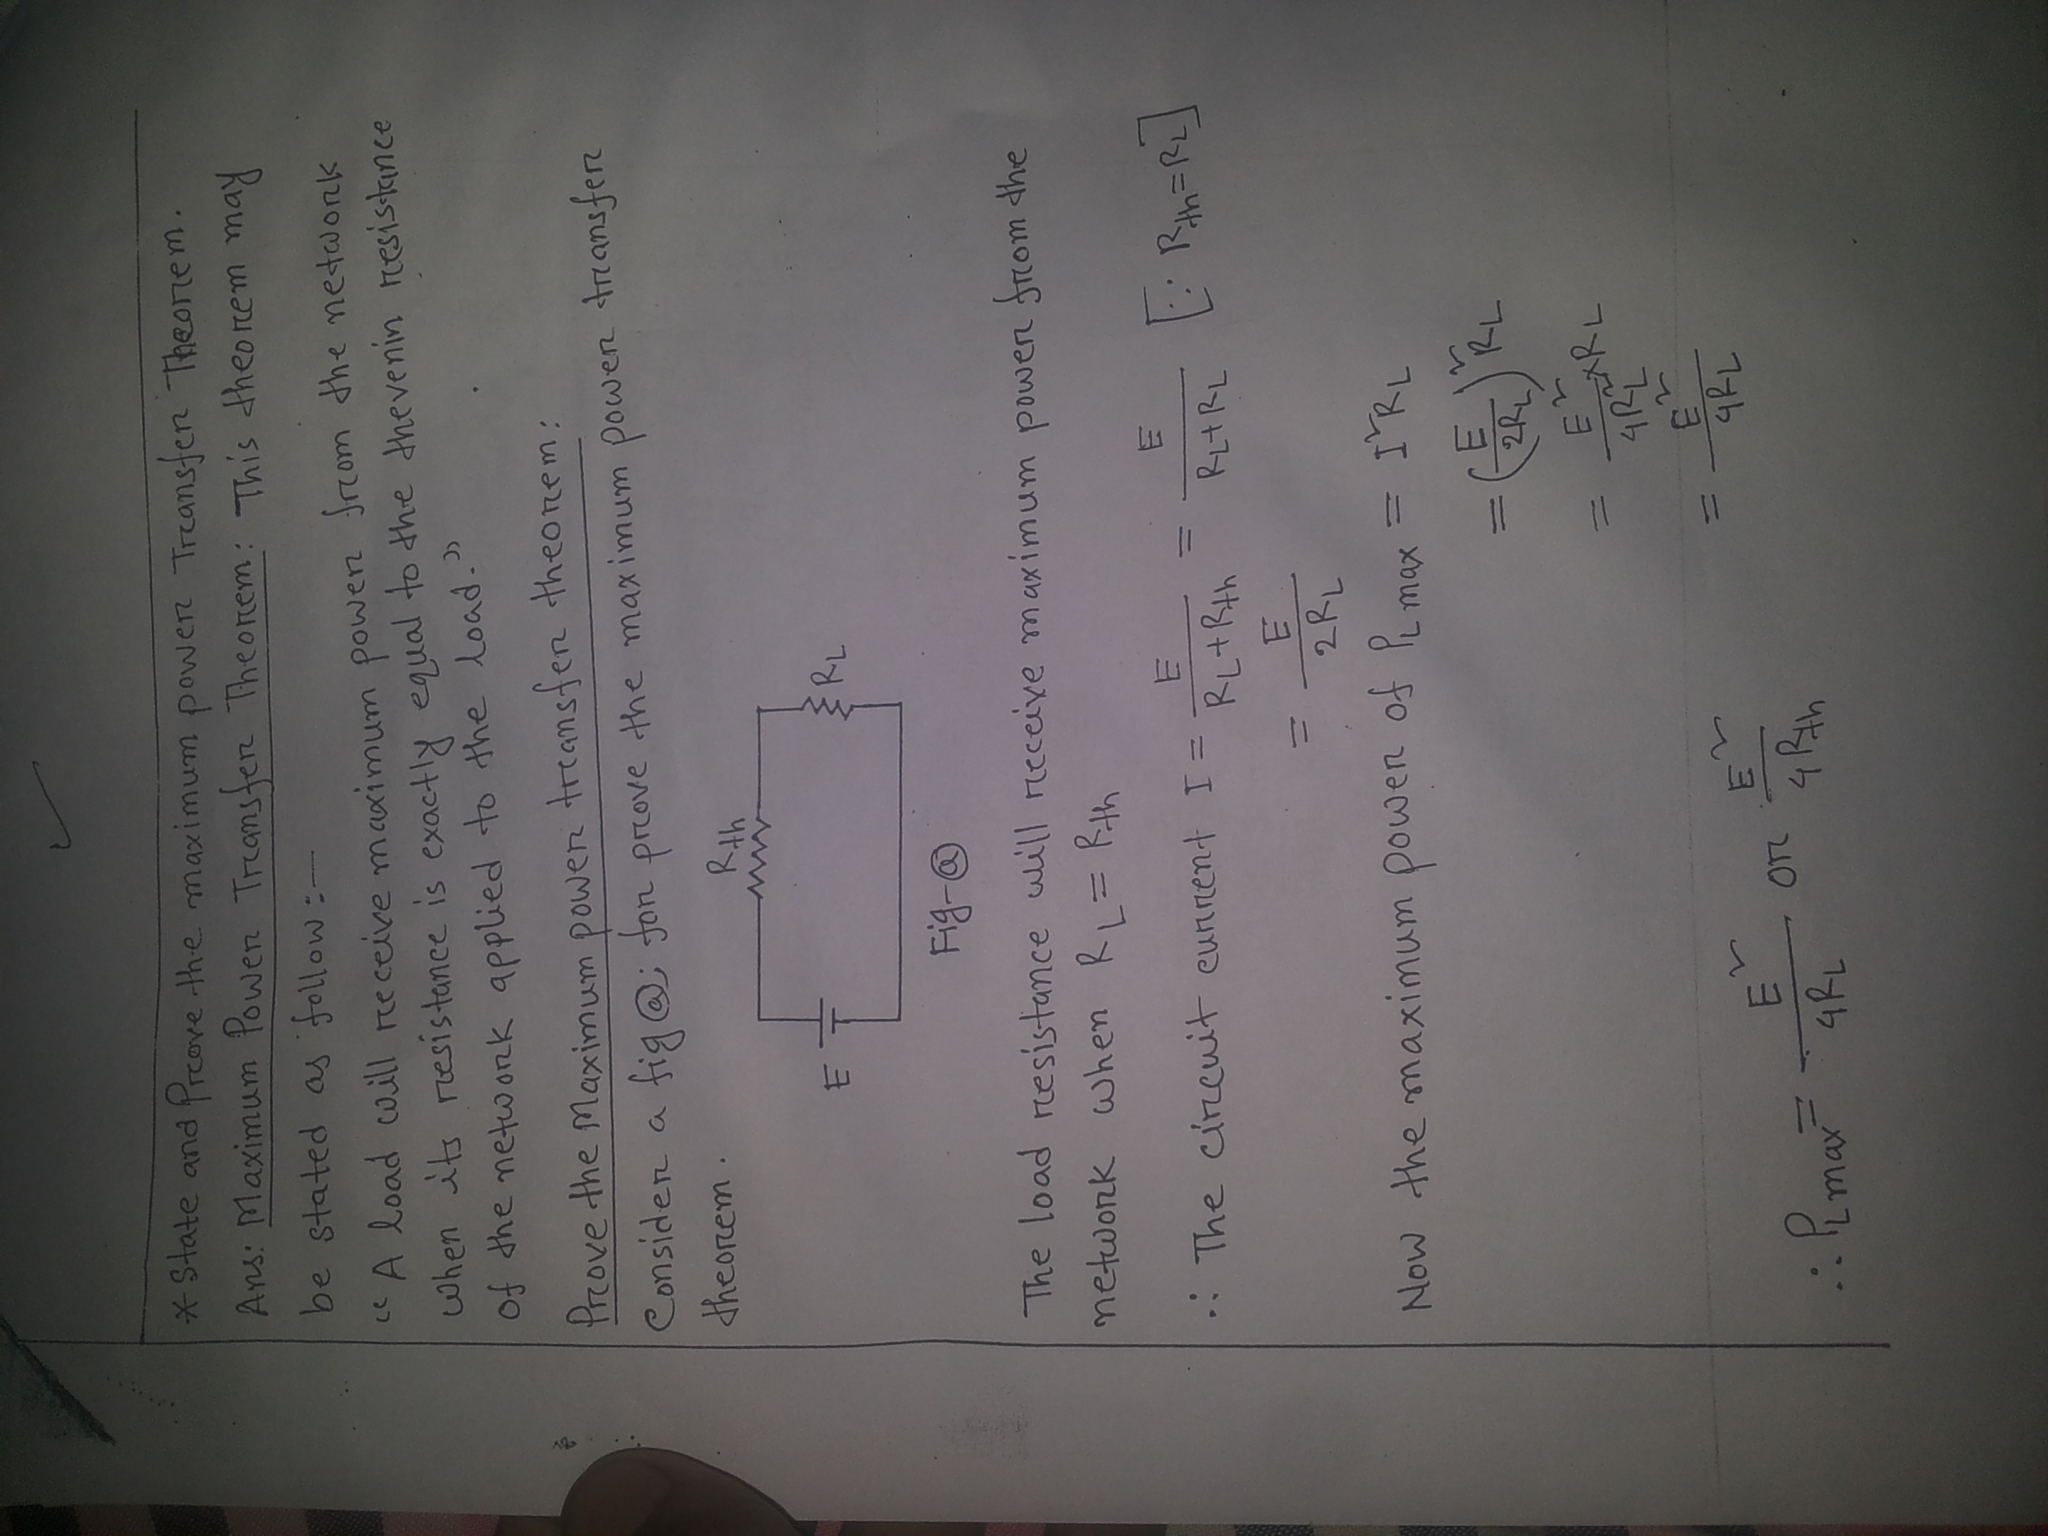 * State and Prove the maximum power Transfer Theorem.
Ans: Maximum Power Transfer Theorem: This theorem may
be stated as follow :—
“A load will receive maximum power from the network
when its resistance is exactly equal to the thevenin resistance
of the network applied to the load.”
Prove the Maximum power transfer theorem:
Consider a fig ⓐ; for prove the maximum power transfer
theorem.
Rth
E
RL
Fig-ⓐ
The load resistance will receive maximum power from the
network when RL = Rth
∴ The circuit current I = E/(RL+Rth) = E/(RL+RL) [∵ Rth=RL]
= E/2RL
Now the maximum power of PL max = I²RL
= (E/2RL)² RL
= E²/4RL² × RL
= E²/4RL
∴ PL max = E²/4RL or E²/4Rth